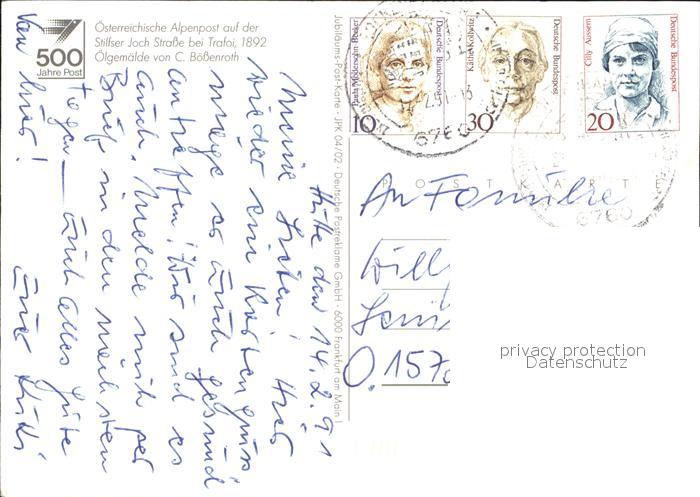 500
Jahre Post
Österreichische Alpenpost auf der
Stilfser Joch Straße bei Trafoi, 1892
Ölgemälde von C. Bößenroth
Jubiläums-Post-Karte · JPK 04/02 · Deutsche Postreklame GmbH · 6000 Frankfurt am Main 1
Paula Modersohn-Becker
Deutsche Bundespost
10
Käthe Kollwitz
Deutsche Bundespost
30
Cilly Aussem
Deutsche Bundespost
20
6760
6760
POSTKARTE
Hütte den 14.2.91
Meine Lieben! Hier
wieder ein Kartengruss
möge er Euch gesund
antreffen! Wir sind es
auch. Melde mich per
Brief in den nächsten
Tagen — Euch alles Gute
von hier! Eure
An Familie
Will
O. 157
privacy protection
Datenschutz